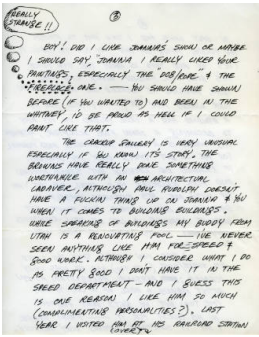 REALLY
STRANGE!!
3
BOY! DID I LIKE JOANNA'S SHOW OR MAYBE
I SHOULD SAY, JOANNA I REALLY LIKED YOUR
PAINTINGS, ESPECIALLY THE DOG/ROPE & THE
FIREPLACE ONE. — YOU SHOULD HAVE SHOWN
BEFORE (IF YOU WANTED TO) AND BEEN IN THE
WHITNEY, I'D BE PROUD AS HELL IF I COULD
PAINT LIKE THAT.
THE GALLERY IS VERY UNUSUAL
ESPECIALLY IF YOU KNOW ITS STORY. THE
BROWNS HAVE REALLY DONE SOMETHING
WORTHWHILE WITH AN ARCHITECTURAL
CADAVER, ALTHOUGH PAUL RUDOLPH DOESN'T
HAVE A FUCKIN THING UP ON JOANNA & YOU
WHEN IT COMES TO BUILDING BUILDINGS.
WHILE SPEAKING OF BUILDINGS MY BUDDY FROM
UTAH IS A RENOVATING FOOL — I'VE NEVER
SEEN ANYTHING LIKE HIM FOR SPEED &
GOOD WORK. ALTHOUGH I CONSIDER WHAT I DO
AS PRETTY GOOD I DON'T HAVE IT IN THE
SPEED DEPARTMENT — AND I GUESS THIS
IS ONE REASON I LIKE HIM SO MUCH
(COMPLIMENTING PERSONALITIES?). LAST
YEAR I VISITED HIM AT HIS RAILROAD STATION
(OVER)